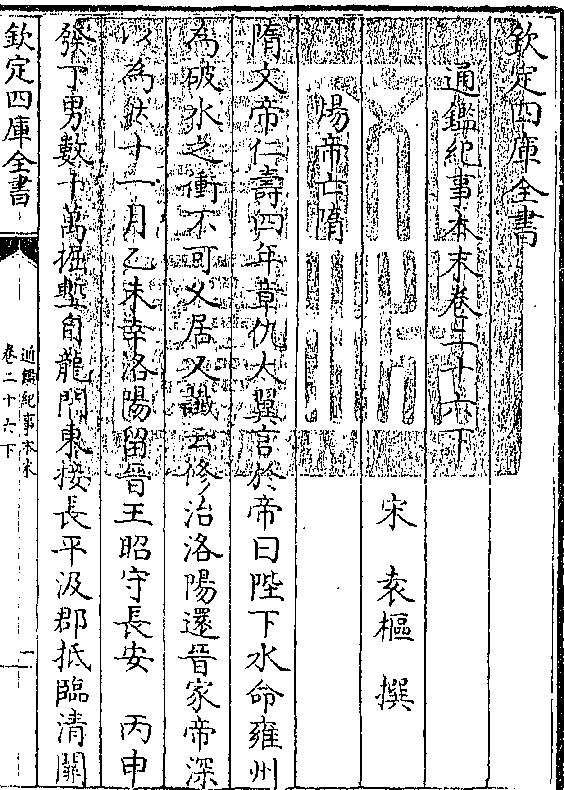 欽定四庫全書
通鑑紀事本末卷二十六下
宋 袁樞 撰
煬帝亡隋
隋文帝仁壽四年章仇太翼言於帝曰陛下水命雍州
為破水之衝不可久居又讖云修治洛陽還晉家帝深
以為然十一月乙未幸洛陽留晉王昭守長安 丙申
發丁男數十萬掘塹自龍門東接長平汲郡抵臨清關
欽定四庫全書
通鑑紀事本末
卷二十六下
一